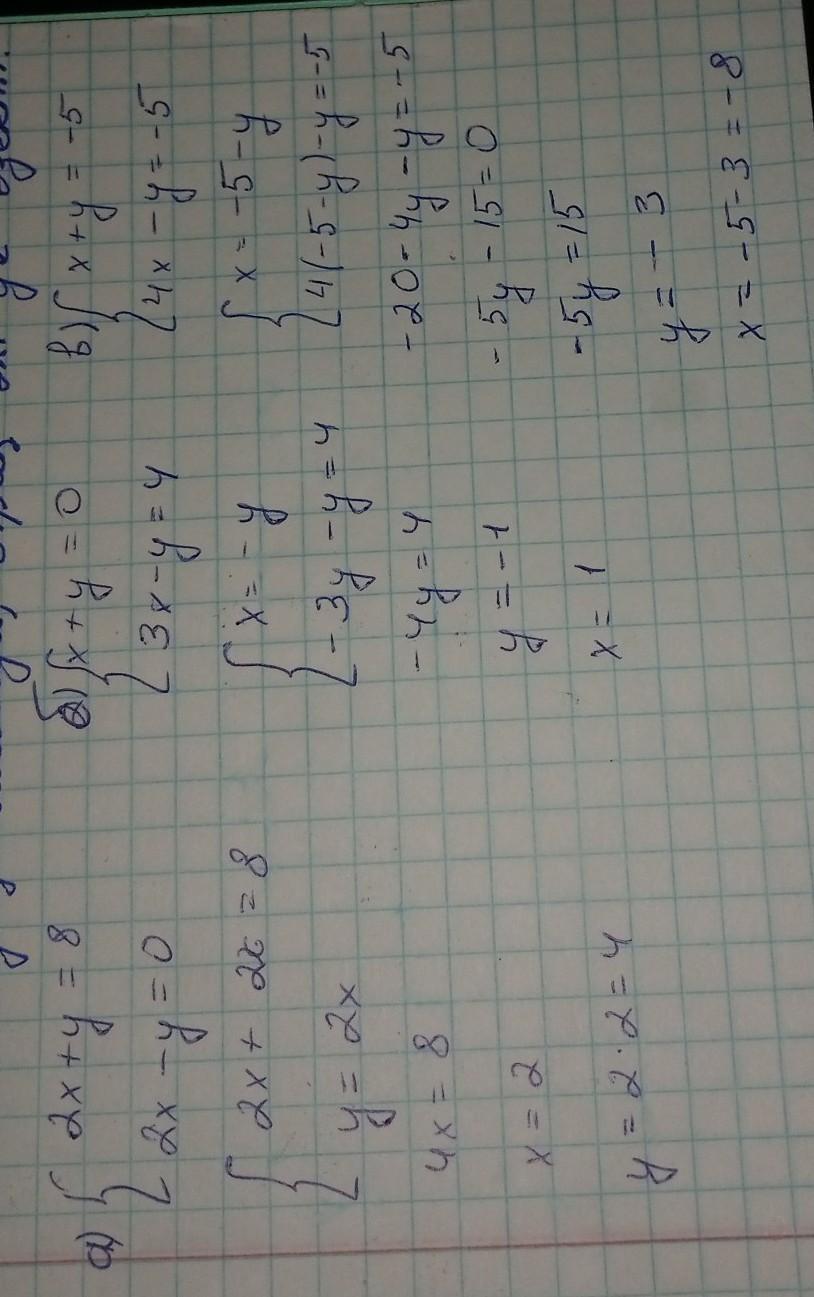 а) { 2x + y = 8
2x - y = 0
{ 2x + 2x = 8
y = 2x
4x = 8
x = 2
y = 2 · 2 = 4
б) { x + y = 0
3x - y = 4
{ x = - y
- 3y - y = 4
- 4y = 4
y = - 1
x = 1
в) { x + y = -5
4x - y = -5
{ x = -5 - y
4(-5 - y) - y = -5
- 20 - 4y - y = -5
- 5y - 15 = 0
- 5y = 15
y = - 3
x = -5 - 3 = -8